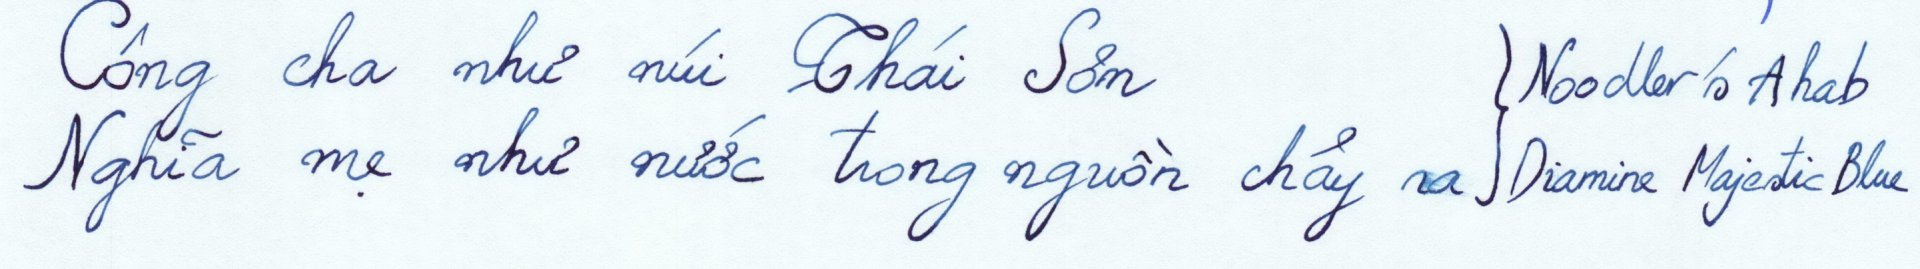 Công cha như núi Thái Sơn } Noodler's Ahab
Nghĩa mẹ như nước trong nguồn chảy ra } Diamine Majestic Blue